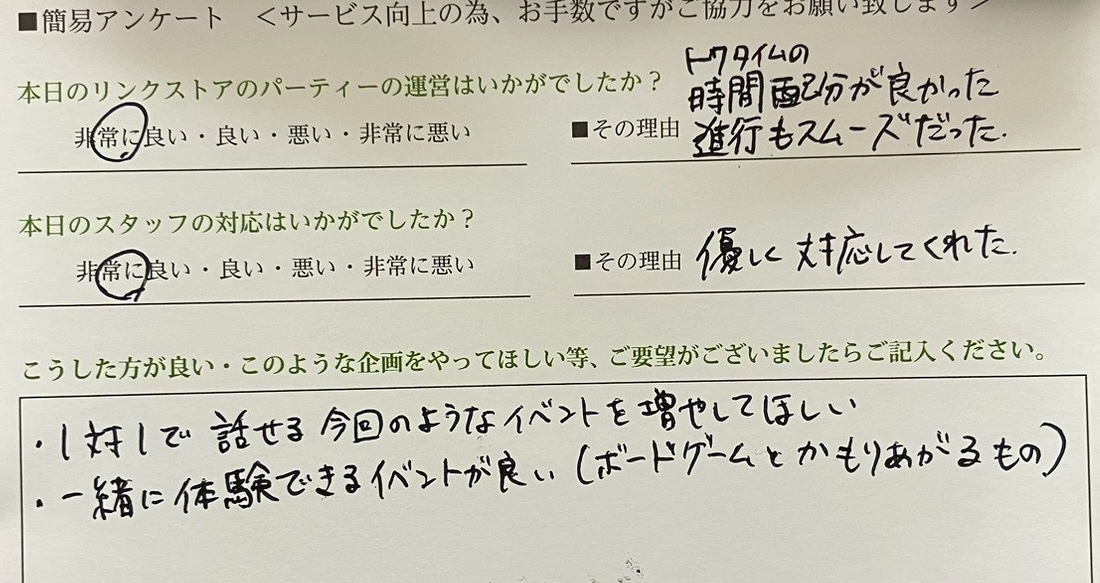 ■簡易アンケート ＜サービス向上の為、お手数ですがご協力をお願い致します＞
本日のリンクストアのパーティーの運営はいかがでしたか？
非常に良い・良い・悪い・非常に悪い
■その理由
トワタイムの
時間配分が良かった
進行もスムーズだった.
本日のスタッフの対応はいかがでしたか？
非常に良い・良い・悪い・非常に悪い
■その理由 優しく対応してくれた.
こうした方が良い・このような企画をやってほしい等、ご要望がございましたらご記入ください。
・1対1で話せる今回のようなイベントを増やしてほしい
・一緒に体験できるイベントが良い(ボードゲームとかもりあがるもの)